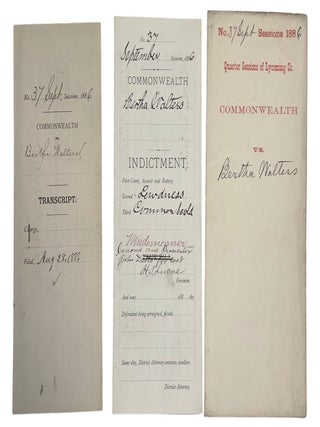 No. 37 Sept. Sessions, 1886
COMMONWEALTH
vs.
Bertha Walters
TRANSCRIPT.
Charge,
Filed, Aug 28, 1886
No. 37
September Sessions, 1886
COMMONWEALTH
Bertha Walters
INDICTMENT,
First Count, Assault and Battery.
Second " Lewdness
Third Common Scold
Misdemeanor
and Prosecutor
John
Foreman.
And now 188 the
Defendant being arraigned, pleads
Same day, District Attorney
District Attorney.
No. 37 Sept Sessions 1886
Quarter Sessions of Lycoming Co.
COMMONWEALTH
VS.
Bertha Walters